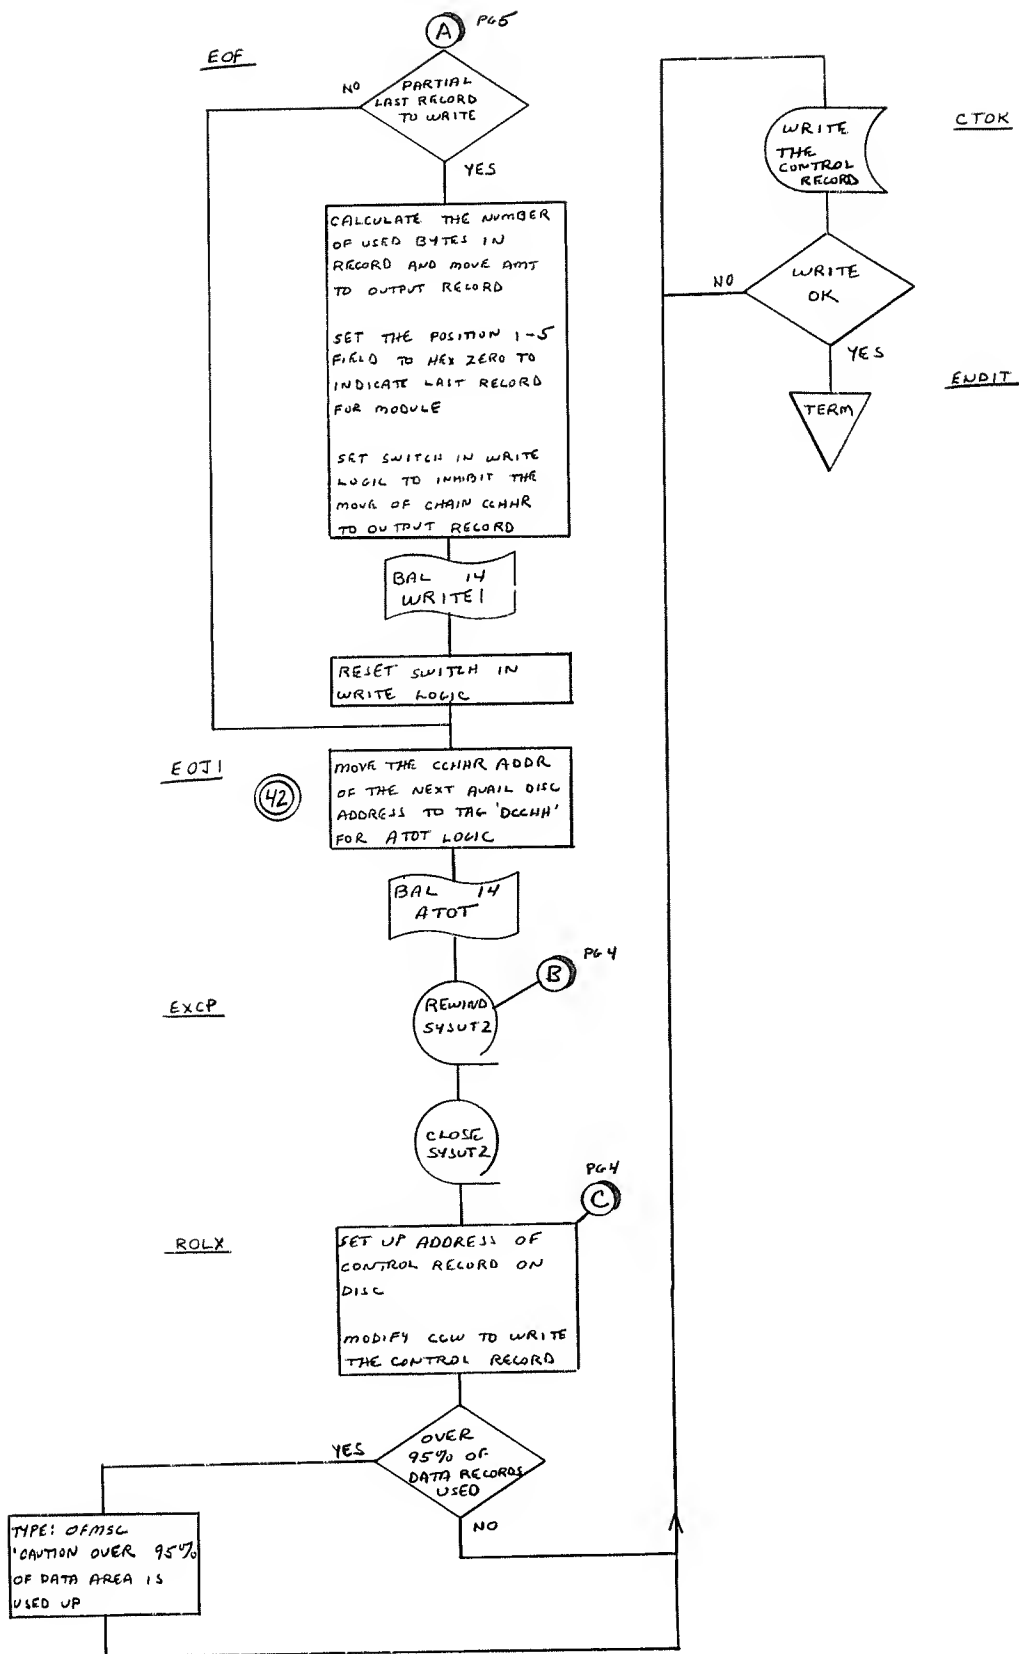 A PG5
EOF
NO
PARTIAL
LAST RECORD
TO WRITE
YES
CALCULATE THE NUMBER
OF USED BYTES IN
RECORD AND MOVE AMT
TO OUTPUT RECORD
SET THE POSITION 1-5
FIELD TO HEX ZERO TO
INDICATE LAST RECORD
FOR MODULE
SET SWITCH IN WRITE
LOGIC TO INHIBIT THE
MOVE OF CHAIN CCHHR
TO OUTPUT RECORD
BAL 14
WRITE1
RESET SWITCH IN
WRITE LOGIC
EOJ1
42
MOVE THE CCHHR ADDR
OF THE NEXT AVAIL DISC
ADDRESS TO TAG 'DCCHH'
FOR ATOT LOGIC
BAL 14
ATOT
B PG4
EXCP
REWIND
SYSUT2
CLOSE
SYSUT2
PG4
C
ROLX
SET UP ADDRESS OF
CONTROL RECORD ON
DISC
MODIFY CCW TO WRITE
THE CONTROL RECORD
YES
OVER
95% OF
DATA RECORDS
USED
NO
TYPE: OFMSG
'CAUTION OVER 95%
OF DATA AREA IS
USED UP
WRITE
THE
CONTROL
RECORD
CTOK
NO
WRITE
OK
YES
ENDIT
TERM